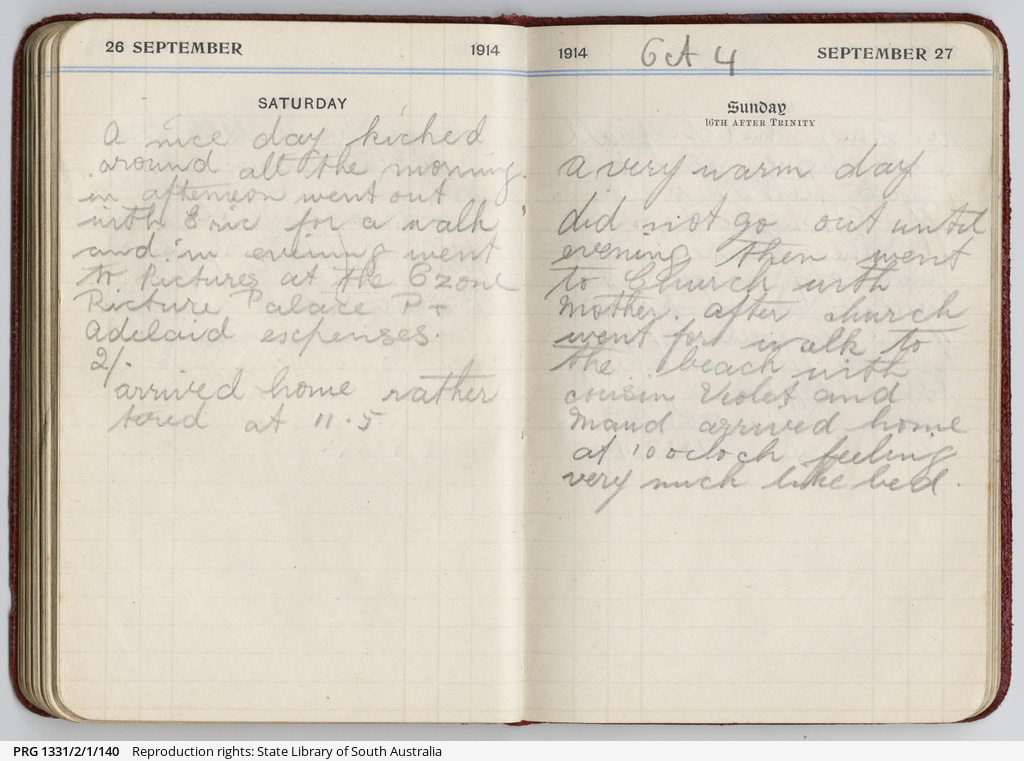 26 SEPTEMBER 1914
SATURDAY
A nice day kicked
around all the morning
in afternoon went out
with Eric for a walk
and in evening went
to Pictures at the Ozone
Picture Palace P-
Adelaid escpenses.
2/-
arrived home rather
tired at 11.5
1914 6A 4 SEPTEMBER 27
Sunday
16TH AFTER TRINITY
a very warm day
did not go out until
evening then went
to Church with
Mother. after church
went for walk to
the beach with
cousin Violet and
Maud arrived home
at 10 o'cloch feeling
very much like bed.
PRG 1331/2/1/140 Reproduction rights: State Library of South Australia